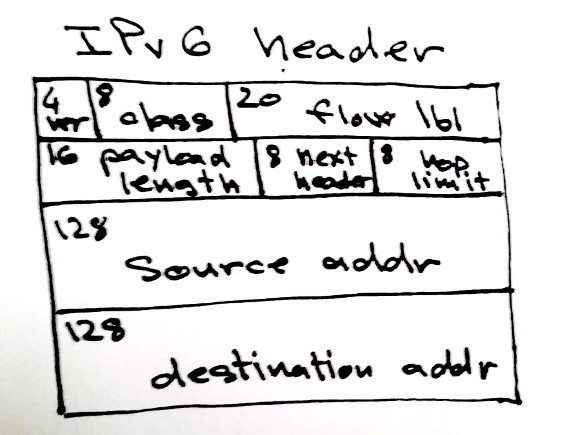 IPv6 header
4 ver 8 class 20 flow lbl
16 payload length 8 next header 8 hop limit
128
Source addr
128
destination addr